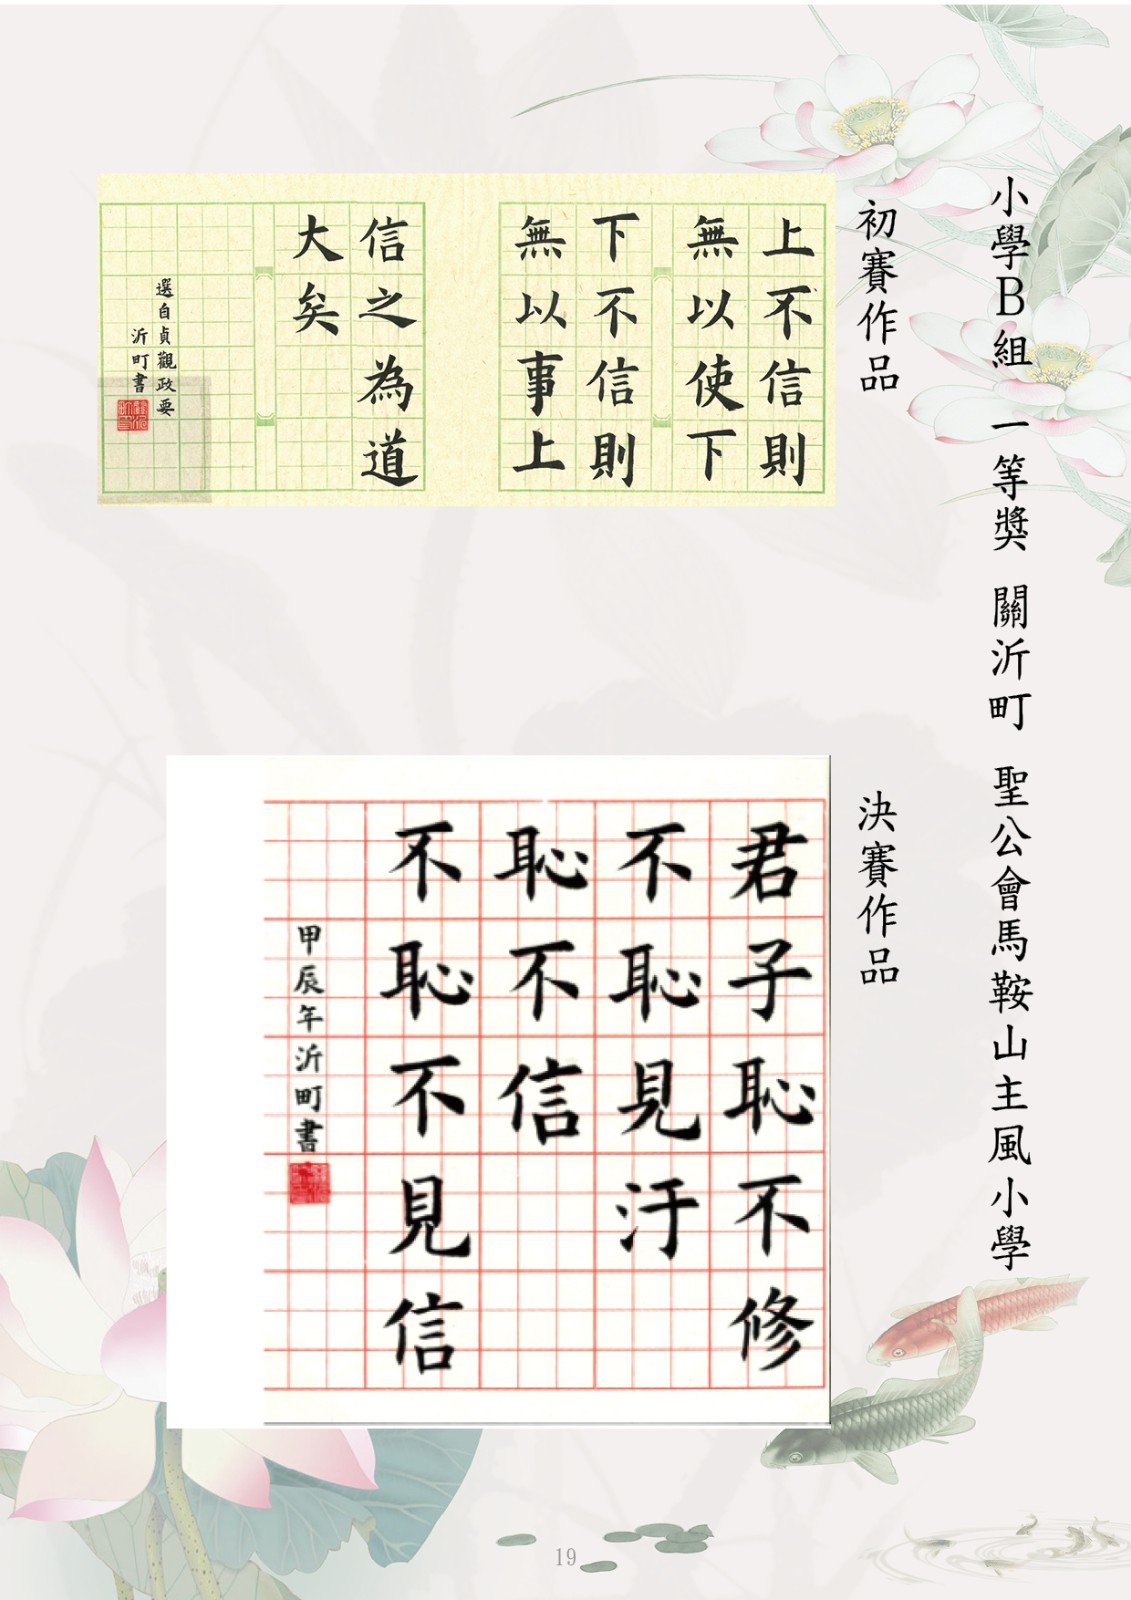 小學B組 一等獎 關沂町 聖公會馬鞍山主風小學
初賽作品
上不信則
無以使下
下不信則
無以事上
信之為道
大矣
選自貞觀政要
沂町書
決賽作品
君子恥不修
不恥見汙
恥不信
不恥不見信
甲辰年沂町書
19